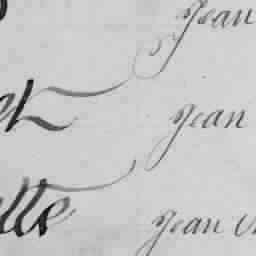 Jean
et Jean
tte Jean